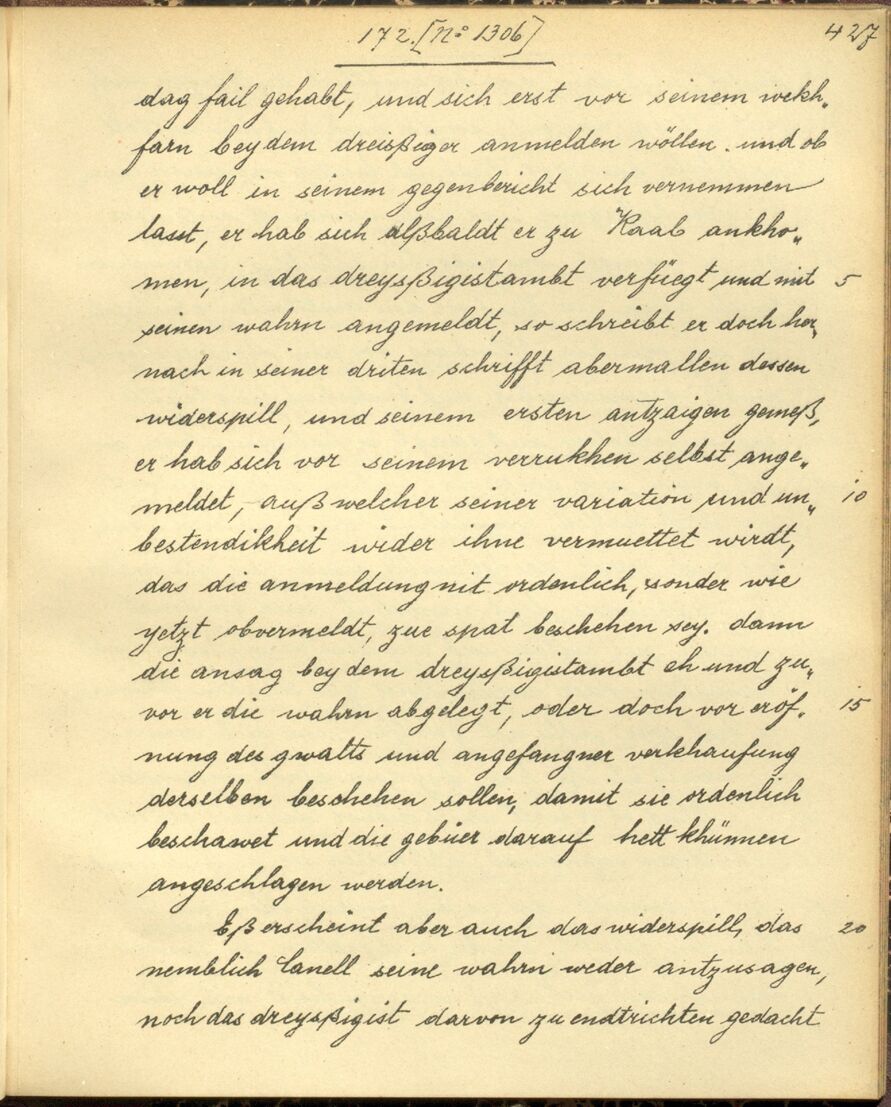 172. [No 1306]
427
dag fail gehabt, und sich erst vor seinem wekh„
farn bey dem dreisßiger anmelden wöllen. und ob
er woll in seinem gegenbericht sich vernemmen
lasst, er hab sich alßbaldt er zu Raab ankho„
men, in das dreysßigistambt verfüegt und mit 5
seinen wahrn angemeldt, so schreibt er doch her„
nach in seiner driten schrifft abermallen dessen
widerspill, und seinem ersten antzaigen gemeß,
er hab sich vor seinem verrukhen selbst ange„
meldet, auß welcher seiner variation und un„ 10
bestendikheit wider ihne vermuettet wirdt,
das die anmeldung nit ordenlich, sonder wie
yetzt obvermeldt, zue spat beschehen sey. dann
die ansag bey dem dreysßigistambt eh und zu„
vor er die wahrn abgelegt, oder doch vor eröf„ 15
nung des gwalts und angefangner verkhaufung
derselben beschehen sollen, damit sie ordenlich
beschawet und die gebüer darauf hett khünnen
angeschlagen werden.
Eß erscheint aber auch das widerspill, das 20
nemblich Canell seine wahrn weder antzusagen,
noch das dreysßigist darvon zu endtrichten gedacht